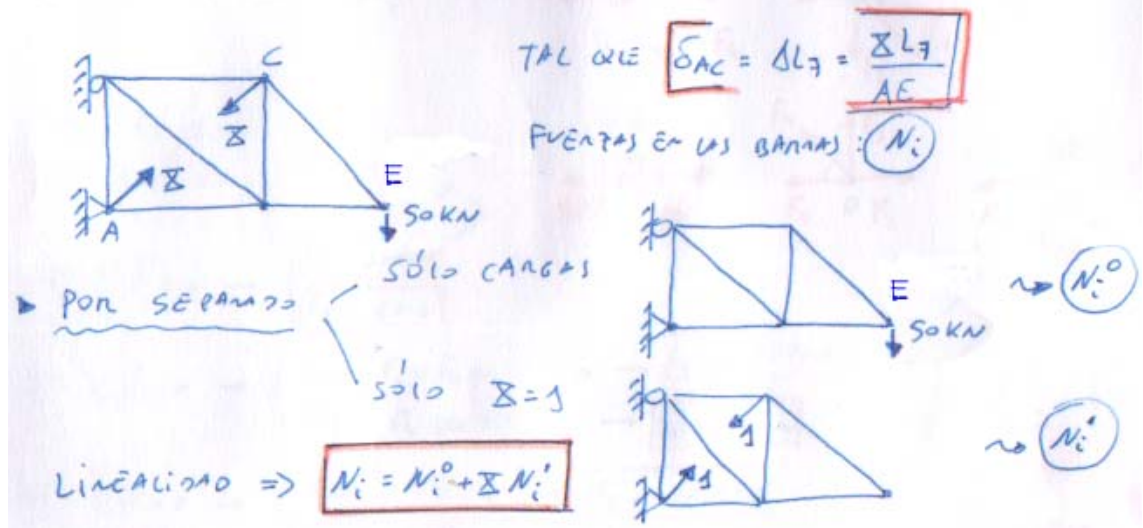 TAL QUE δAC = ΔL7 = X L7 / AE
C
X
X
A
E
50 KN
FUERZAS EN LAS BARRAS: Ni
▶ POR SEPARADO
SÓLO CARGAS
E
50 KN
Ni°
SÓLO X=1
1
1
Ni'
LINEALIDAD => Ni = Ni° + X Ni'